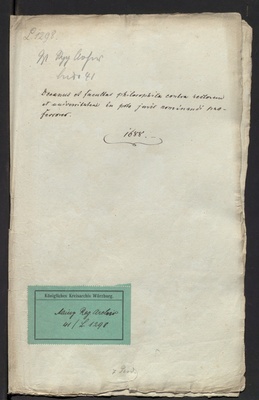 L 1298.
Decanus et facultas philosophica contra rectorem
et universitatem in pto juris nominandi pro-
fessores.
1688.
Königliches Kreisarchiv Würzburg.
Mainz Reg Archiv
41 / L 1298